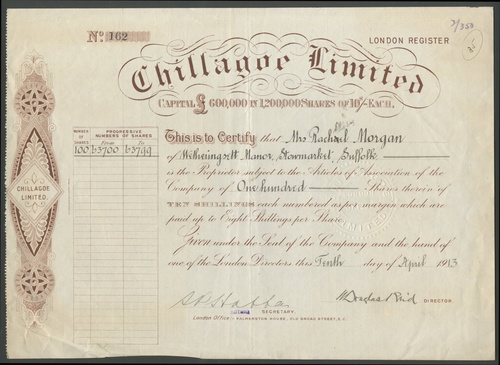 No. 162
LONDON REGISTER
Chillagoe Limited
CAPITAL £600,000 IN 1,200,000 SHARES OF 10/- EACH.
NUMBER OF SHARES
PROGRESSIVE NUMBERS OF SHARES
From To
100 63700 63799
This is to Certify that Mrs Rachael Morgan
of Wetheringsett Manor, Stowmarket, Suffolk
is the Proprietor subject to the Articles of Association of the
Company of One hundred Shares therein of
TEN SHILLINGS each numbered as per margin which are
paid up to Eight Shillings per Share.
Given under the Seal of the Company and the hand of
one of the London Directors this Tenth day of April 1913
CHILLAGOE LIMITED.
DIRECTOR
SECRETARY
London Office - PALMERSTON HOUSE, OLD BROAD STREET, E.C.